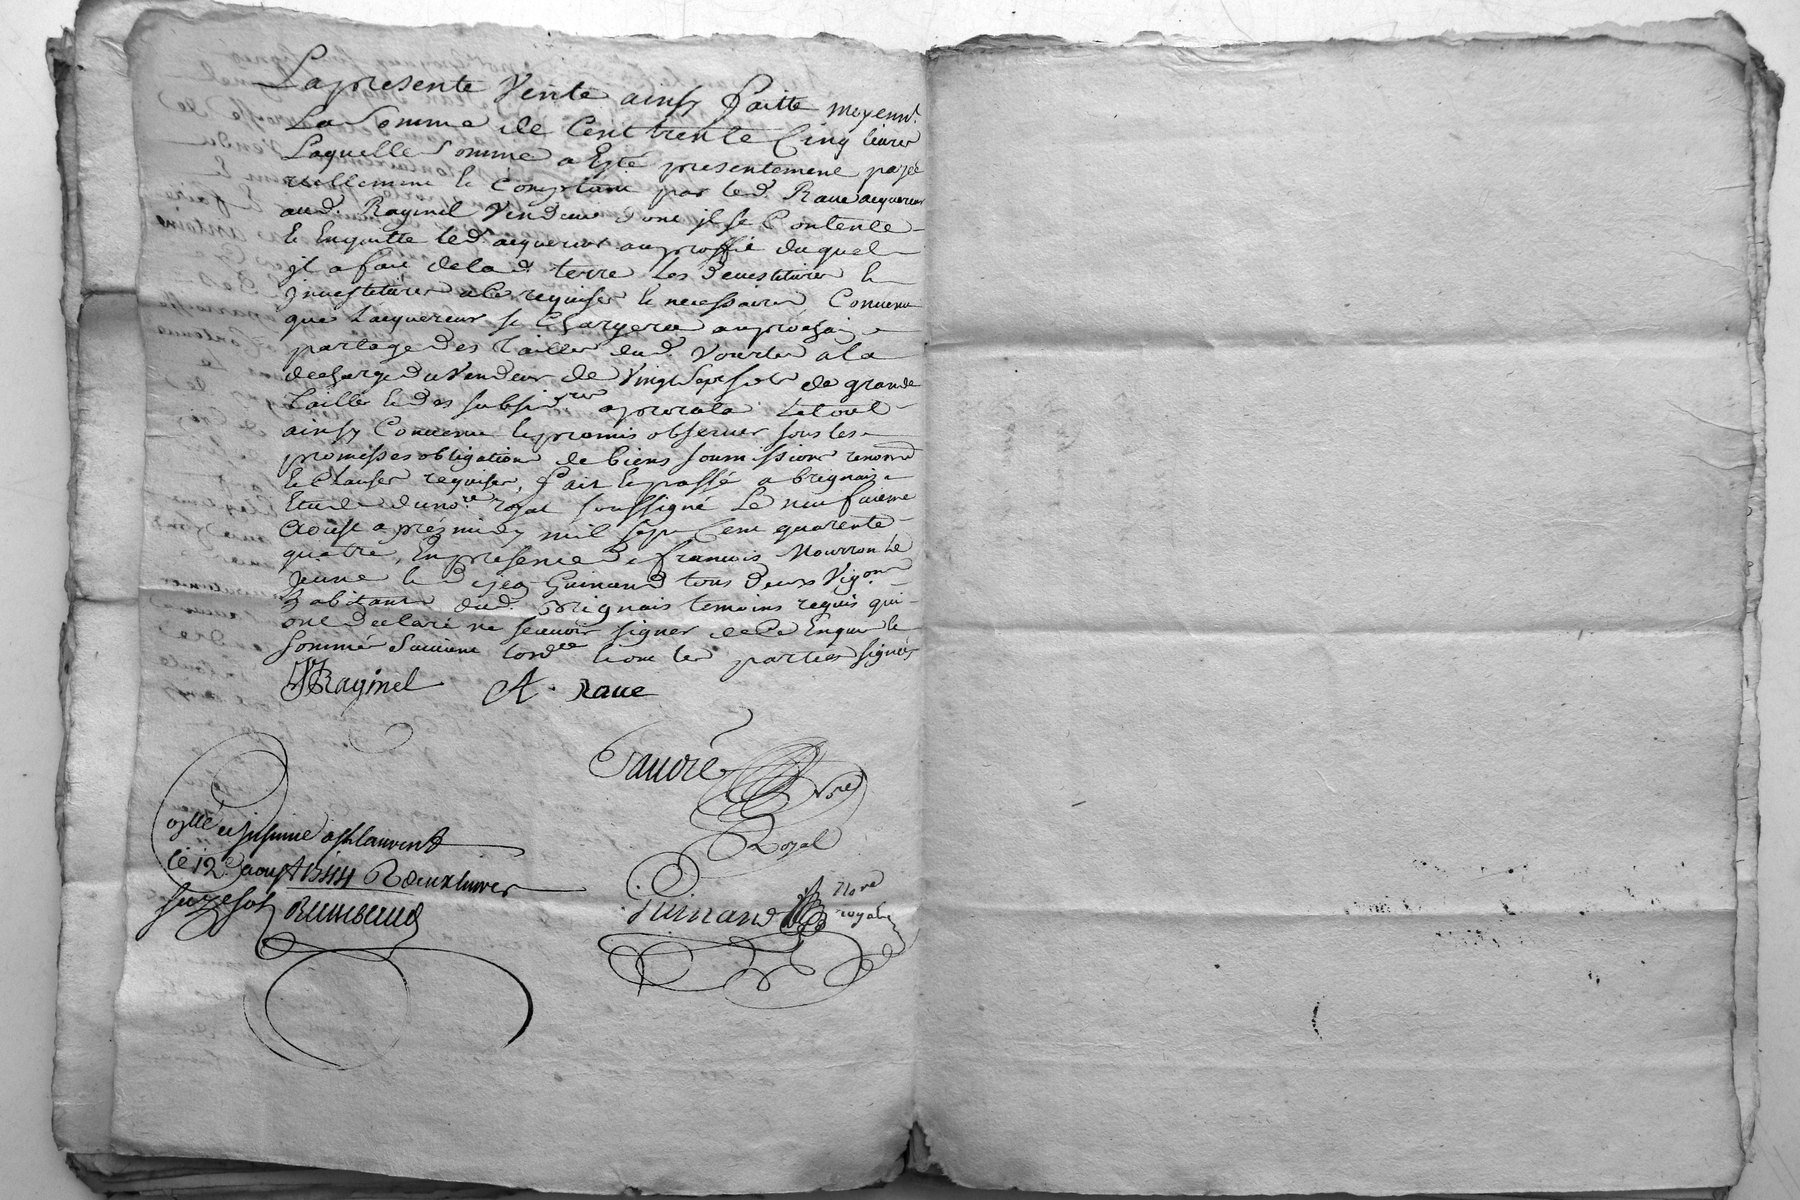 La presente Vente ainsy faitte moyenn.t
La Somme de Cent trente Cinq livres
Laquelle Somme a Esté presentement payée
reellement et Comptant par led. Rave acquereur
aud. Raginel Vendeur dont il se Contente
et Enquitte led. acquereur au proffit duquel
il a fait de lad. terre les devestitures et
investitures a ce requises et necessaires Convenu
que Lacquereur se Chargera au prochain
partage des Tailles dud. Vourles a la
decharge du Vendeur de Vingt Sept sols de grande
Taille et des subsid.res a prorata Le tout
ainsy Convenu et promis observer sous les
promesses obligation de biens soumissions renon.
et Clauses requises, fait et passé a brignais
Etude du no.re royal soussigné Le neufvieme
Aoust apres midy mil sept Cent quarente
quatre, En presence de francois Mourron le
Jeune et de Guinand tous deux Vig.ons
habitants dud. Brignais temoins requis qui
ont declaré ne scavoir signer de ce Enquis et
sommé Suivant lord.ce et ont les parties signés
Raginel A. Rave
Favre
Nore
Royal
le 12e aoust 1744 R deux livres
Guinand Nore
royal